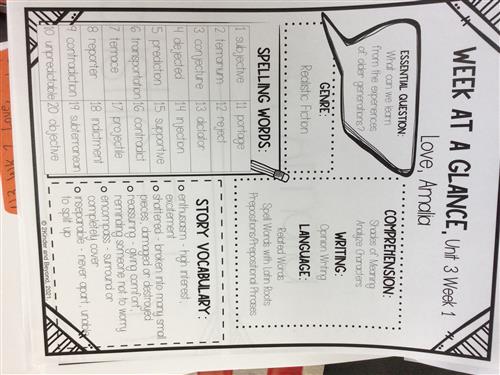 WEEK AT A GLANCE, Unit 3 Week 1
Love, Amalia
ESSENTIAL QUESTION:
What can we learn
from the experiences
of older generations?
GENRE:
Realistic Fiction
COMPREHENSION:
Shades of Meaning
Analyze Characters
WRITING:
Opinion Writing
LANGUAGE:
Related Words
Spell Words with Latin Roots
Prepositions/Prepositional Phrases
SPELLING WORDS:
1 subjective 11 portage
2 terrarium 12 reject
3 conjecture 13 dictator
4 dejected 14 injection
5 prediction 15 supportive
6 transportation 16 contradict
7 terrace 17 projectile
8 reporter 18 indictment
9 contradiction 19 subterranean
10 unpredictable 20 objective
STORY VOCABULARY:
enthusiasm - high interest;
excitement
shattered - broken into many small
pieces; damaged or destroyed
reassuring - giving comfort;
reminding someone not to worry
encompass - surround or
completely cover
inseparable - never apart; unable
to split up
© 2Kinder and Beyond, 2021